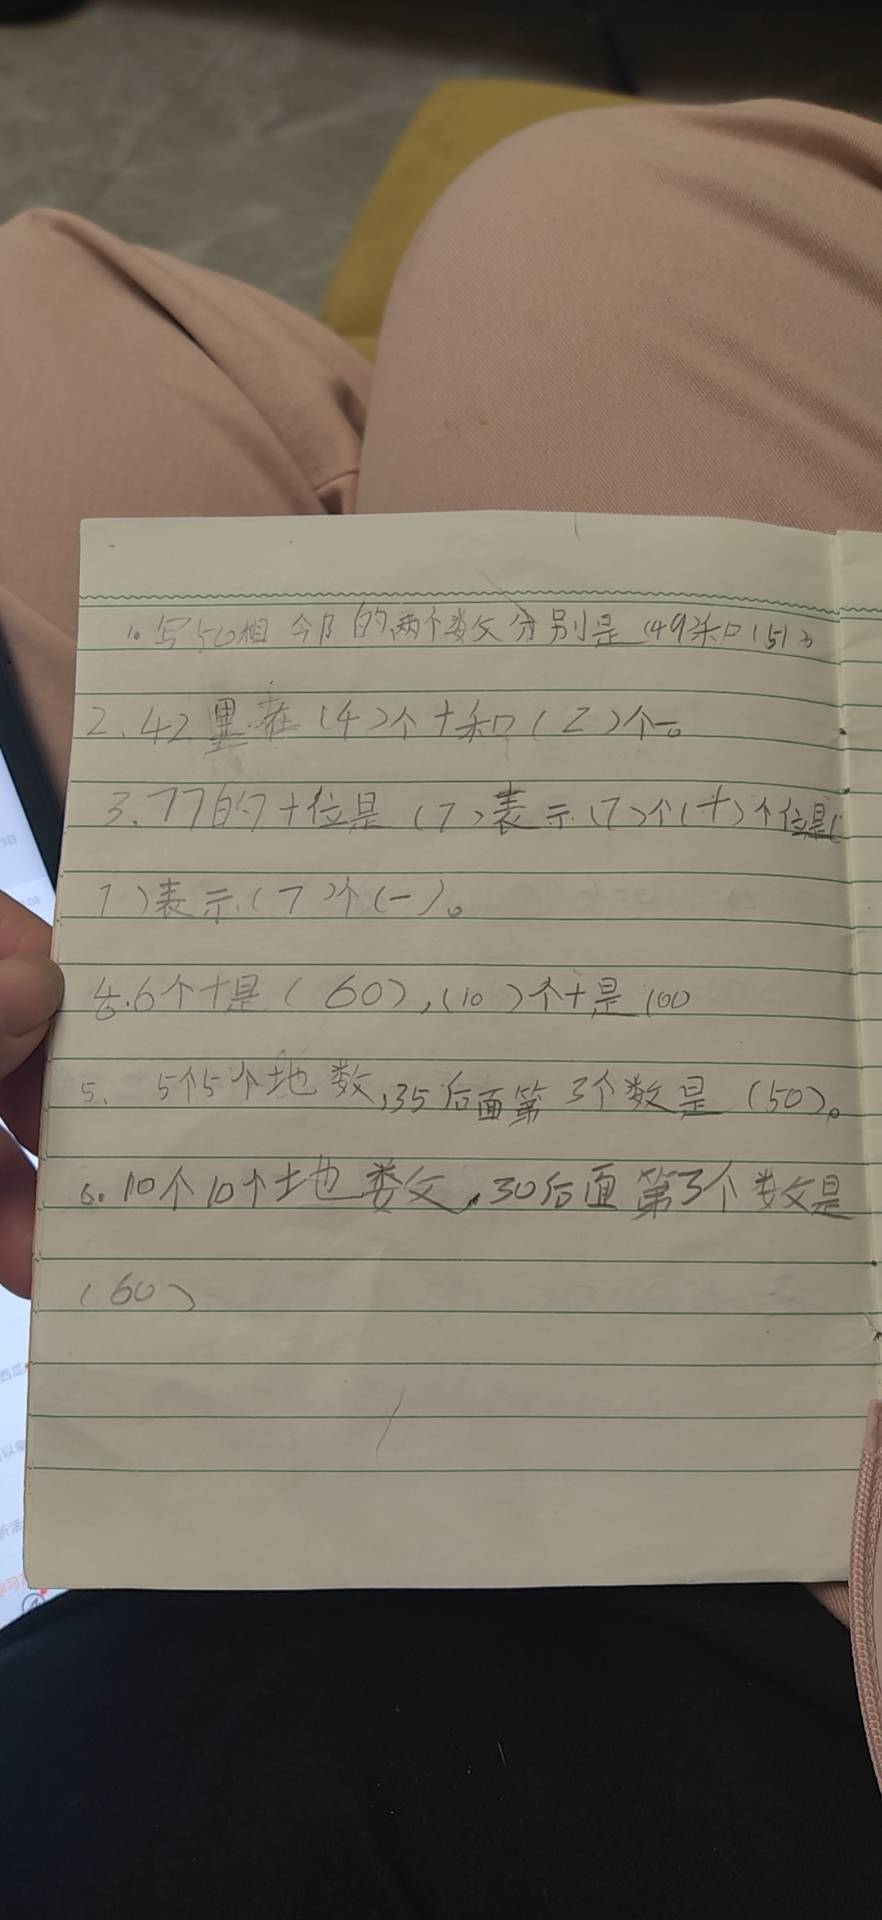 1。写50相邻的两个数分别是(49)和(51)。
2、42里在(4)个十和(2)个一。
3、77的十位是(7)表示(7)个(十)个位是(
7)表示(7)个(一)。
4.6个十是(60),(10)个十是100
5、5个5个地数,35后面第3个数是(50)。
6。10个10个地数,30后面第3个数是
(60)